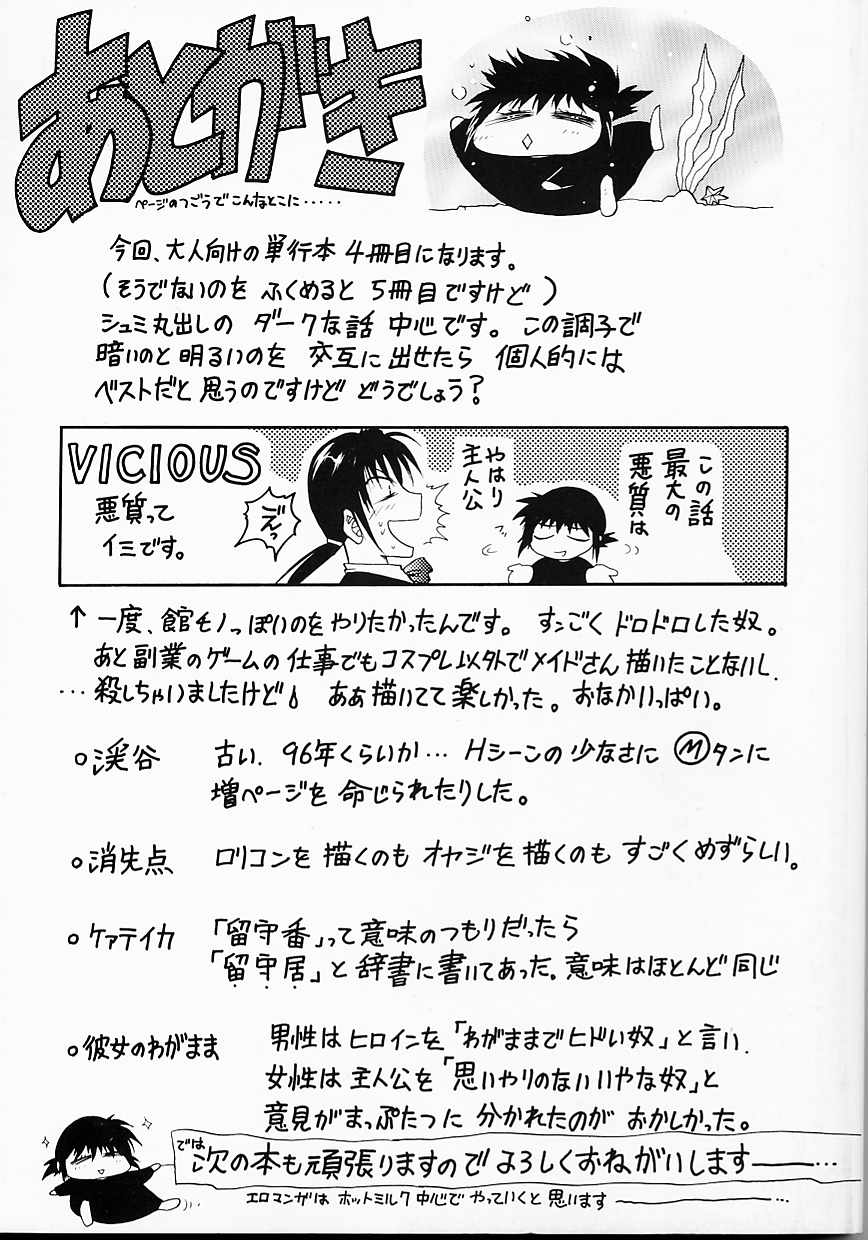 あとがき
ページのつごうでこんなとこに・・・・・
今回、大人向けの単行本 4冊目になります。
(そうでないのを ふくめると 5冊目ですけど)
シュミ丸出しの ダークな話 中心です。この調子で
暗いのと 明るいのを 交互に出せたら 個人的には
ベストだと 思うのですけど どうでしょう?
VICIOUS
悪質って
イミです。
この話
最大の
悪質は
やはり
主人公
↑ 一度、館モノっぽいのを やりたかったんです。 すンごく ドロドロした奴。
あと 副業のゲームの 仕事でも コスプレ以外で メイドさん 描いたことないし.
…殺しちゃいましたけど ああ 描いてて 楽しかった。おなかいっぱい。
○渓谷 古い. 96年くらいか… Hシーンの 少なさに Ⓜタンに
増ページを 命じられたりした。
○消失点 ロリコンを 描くのも オヤジを 描くのも すごく めずらしい。
○ケァテイカ 「留守番」って 意味のつもりだったら
「留守居」と 辞書に 書いてあった。意味はほとんど 同じ
○彼女のわがまま 男性は ヒロインを「わがままでヒドい奴」と 言い.
女性は 主人公を「思いやりのない いやな奴」と
意見が まっぷたつに 分かれたのが おかしかった。
では 次の本も 頑張りますので よろしくおねがいします――――…
エロマンガは ホットミルク 中心で やっていくと 思います――――…